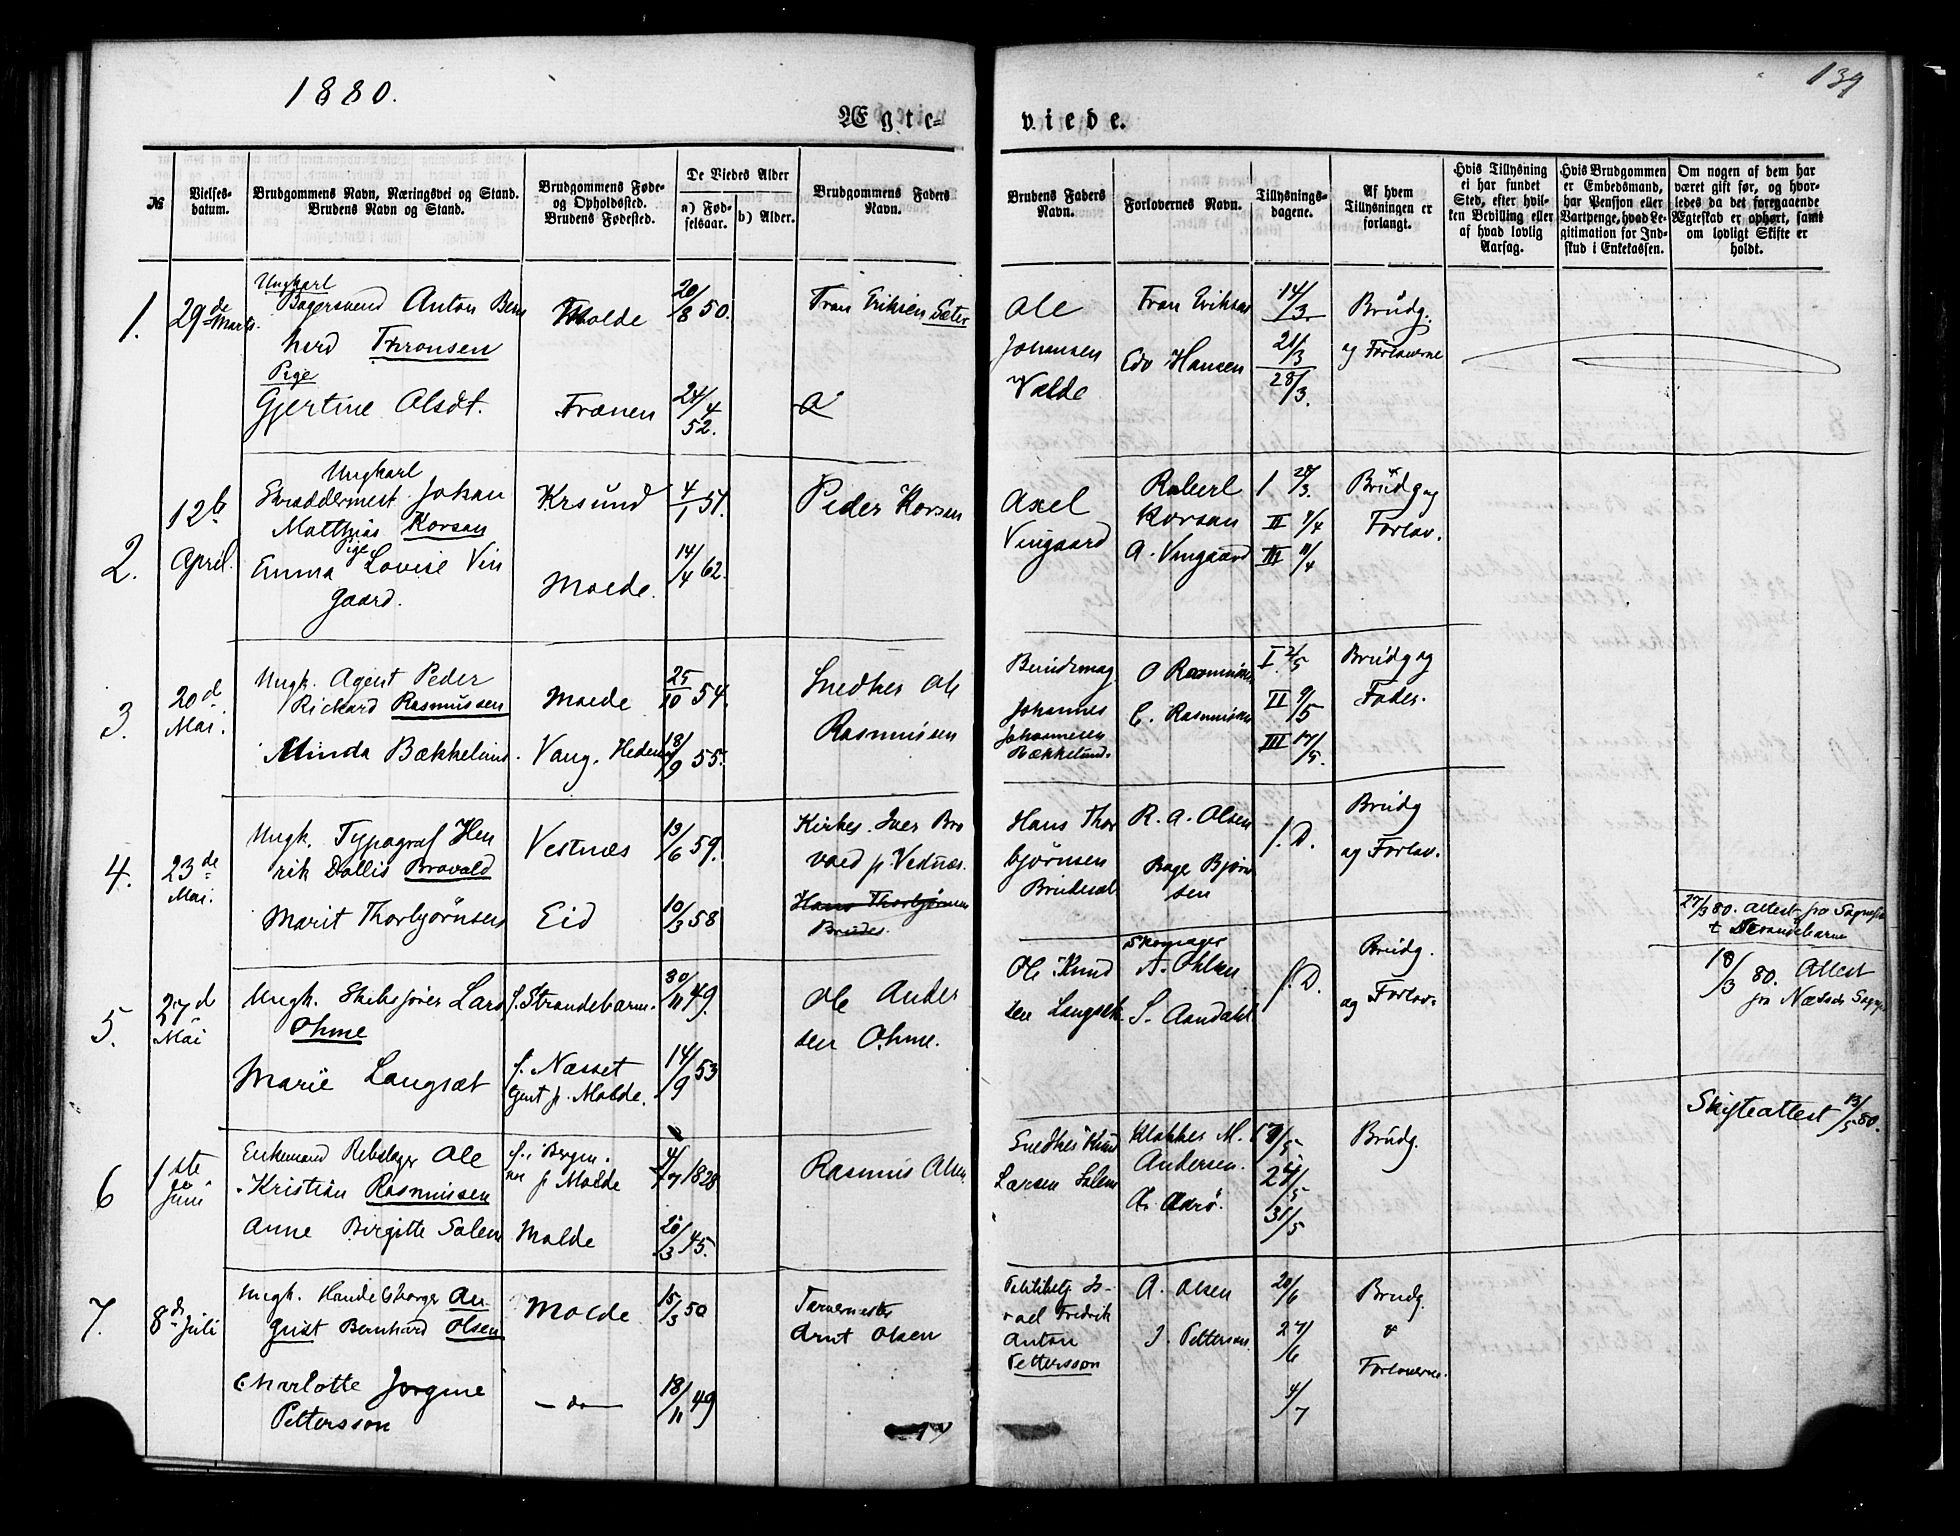 1880.
139
Ægte-
viede.
№
Vielses-
datum.
Brudgommens Navn, Næringsvei og Stand.
Brudens Navn og Stand.
Brudgommens Føde-
og Opholdssted.
Brudens Fødested.
De Viedes Alder
a) Fød-
selsaar.
b) Alder.
Brudgommens Faders
Navn.
Brudens Faders
Navn.
Forlovernes Navn.
Tillysnings-
dagene.
Af hvem
Tillysningen er
forlangt.
Hvis Tillysning
ei har fundet
Sted, efter hvil-
ken Bevilling eller
af hvad lovlig
Aarsag.
Hvis Brudgommen
er Embedsmand,
har Pension eller
Vartpenge, hvad Le-
gitimation for Ind-
skud i Enkekassen.
Om nogen af dem har
været gift før, og hvor-
ledes da det foregaaende
Ægteskab er ophørt, samt
om lovligt Skifte er
holdt.
1.
29de
Marts.
Ungkarl
Bagersvend Anton Bern
herd Thronsen
Pige
Gjertine Olsdt.
Molde
Frænen
20/8 50.
24/4
52.
Tron Eriksen Sæter
Ole
Johansen
Valde
Tron Eriksen
Edv Hansen
14/3.
21/3
28/3.
Brudg.
og Forloverne
2.
12te
April.
Ungkarl
Skræddermest. Johan
Matthias Korsan
Pige
Emma Lovise Vin
gaard.
Krsund
Molde.
4/1 51.
14/4 62.
Peder Korsan
Axel
Vingaard
Robert
Korsan
A. Vingaard
I 28/3.
II 4/4
III 11/4
Brudg og
Forlov.
3.
20d
Mai.
Ungk. Agent Peder
Richard Rasmussen
Minda Bækkelund.
Molde
Vang, Hedem
25/10 54.
18/9 55.
Snedker Ole
Rasmussen
Johannes
Johannesen
Bækkelund.
O Rasmussen
C. Rasmussen
I 2/5
II 9/5
III 17/5.
Brudg og
Fader.
4.
23de
Mai.
Ungk. Typograf Hen
rik Dallis Bravold
Marit Thorbjørnsen
Vestnæs
Eid
13/6 59.
10/3 58
Kirkes. Iver Bra
vold p. Vestnæs.
Hans Thorbjørnsen
Hans Thor
bjørnsen
R. A. Olsen
Bage Bjørn
sen
f. D.
Brudg
og Forlov.
5.
27d
Mai
Ungk. Skibsfører Lars
Ohme
Marie Langsæt
f. Strandebarm.
f. Næsset
Gent p. Molde.
30/11 49.
14/9 53
Ole Ander
sen Ohme.
Ole Knud
sen Langsæt.
Skomager
A. Ohlsen
S. Aandahl
f. D.
Brudg.
og Forlov.
27/3 80. Attest fra Sognepr
t Strandebarm
18/3 80. Attest
fra Næssets Sognepr
6
1ste
Juni
Enkemand Rebslager Ole
Kristian Rasmussen
Anne Birgitte Solem
f. i Bergen.
nu p Molde
Molde
4/7 1828
26/3 45.
Rasmus Olsen
Snedker Knud
Larsen Solem
Klokker M.
Andersen.
A. Aarø.
24/5
31/5
Brudg.
Skifteattest 13/5 80.
7.
8de Juli
Ungk. Handelsborger Au
gust Bernhard Olsen
Charlotte Jørgine
Pettersson
Molde
— do —
15/3 50
18/11 49
Farvermester
Arnt Olsen
Is-
rael Fredrik
Anton
Pettersson
A. Olsen
J. Petterson.
20/6
27/6
4/7
Brudg.
&
Forloverne.